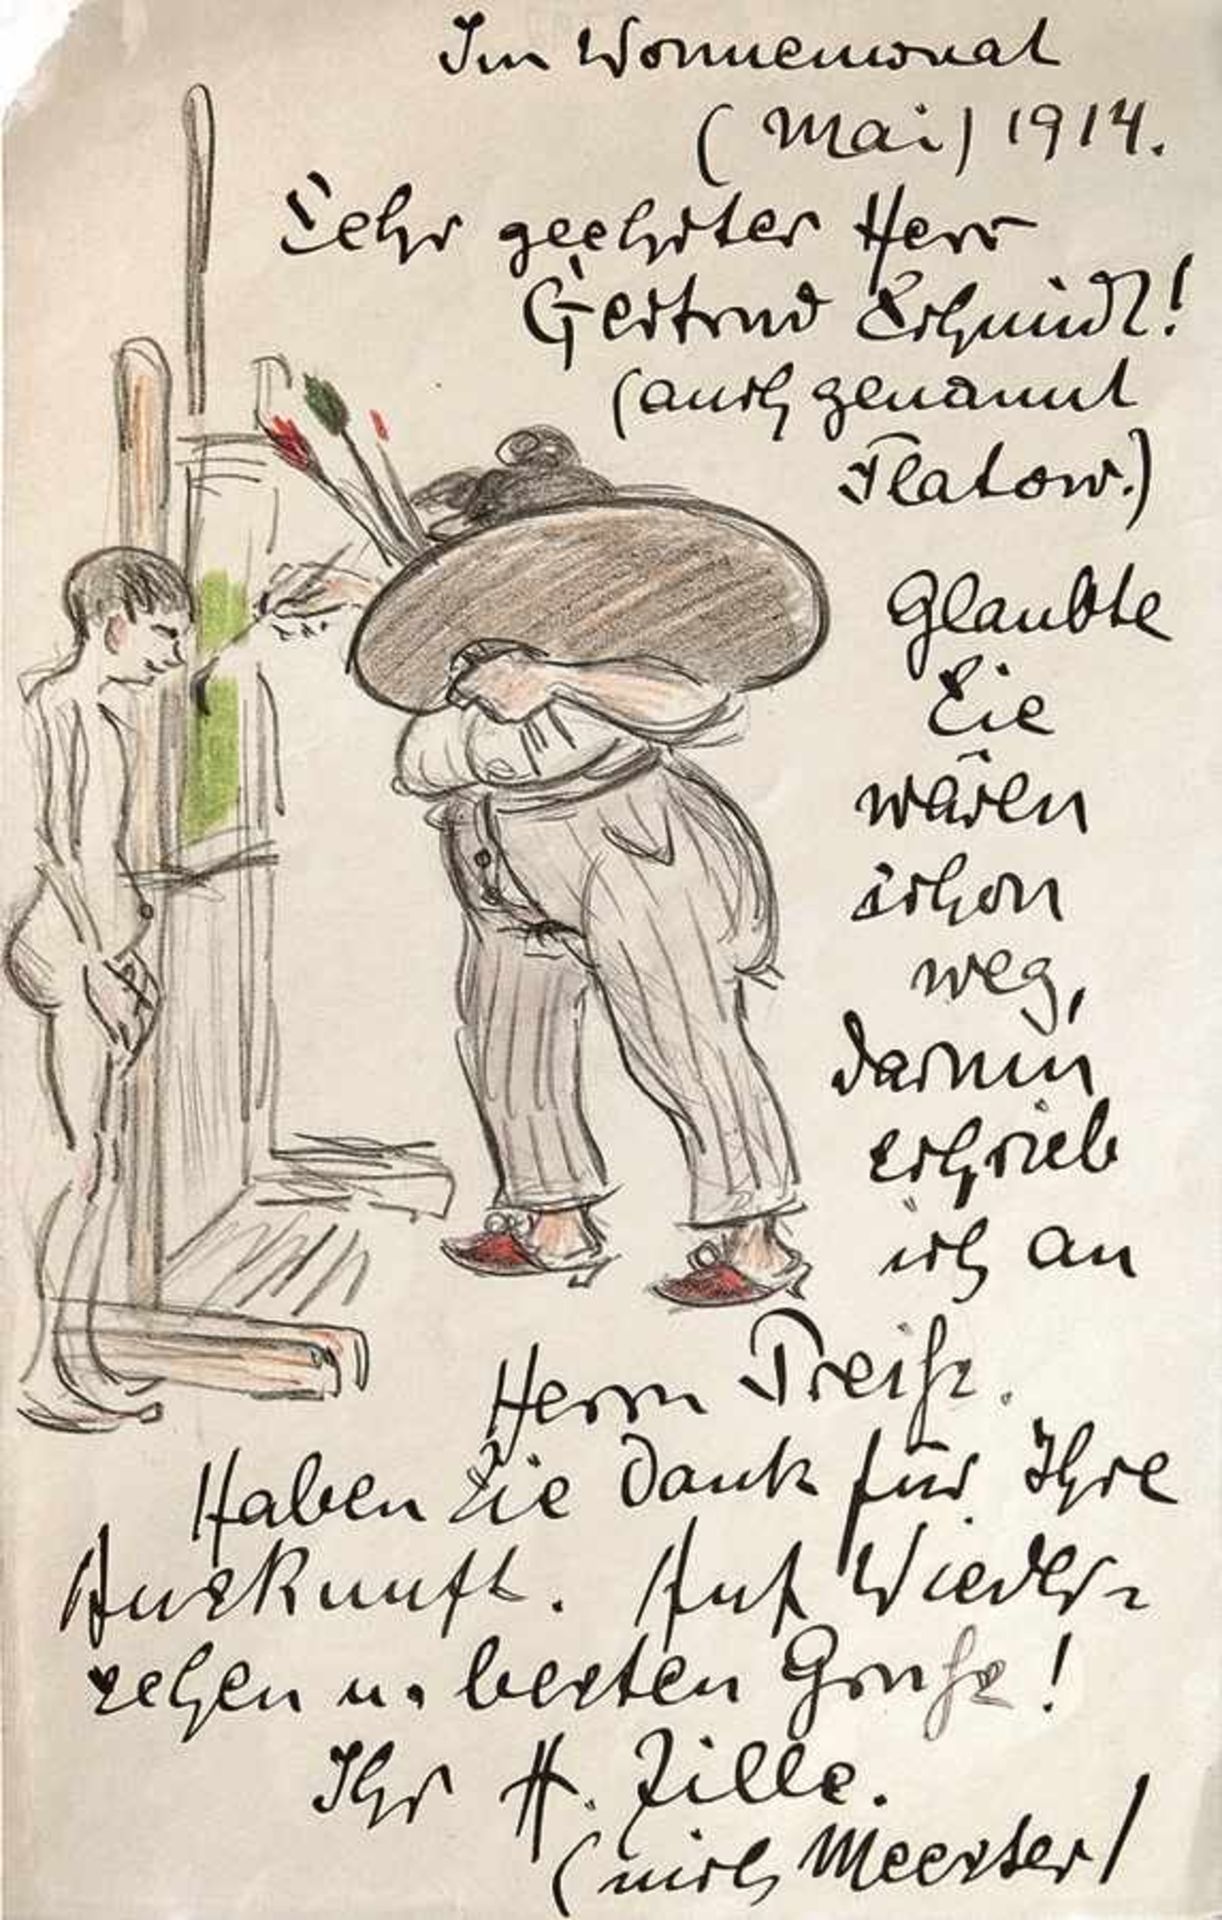 Im Wonnemonat
(Mai) 1914.
Sehr geehrter Herr
Gertrud Schmidt!
(auch genannt
Flatow.)
Glaubte
Sie
wären
schon
weg,
darum
schrieb
ich an
Herrn
Haben Sie Dank für Ihre
Auskunft. Auf Wieder-
sehen u. besten Gruß!
Ihr H. Zille.
(nich Meester)